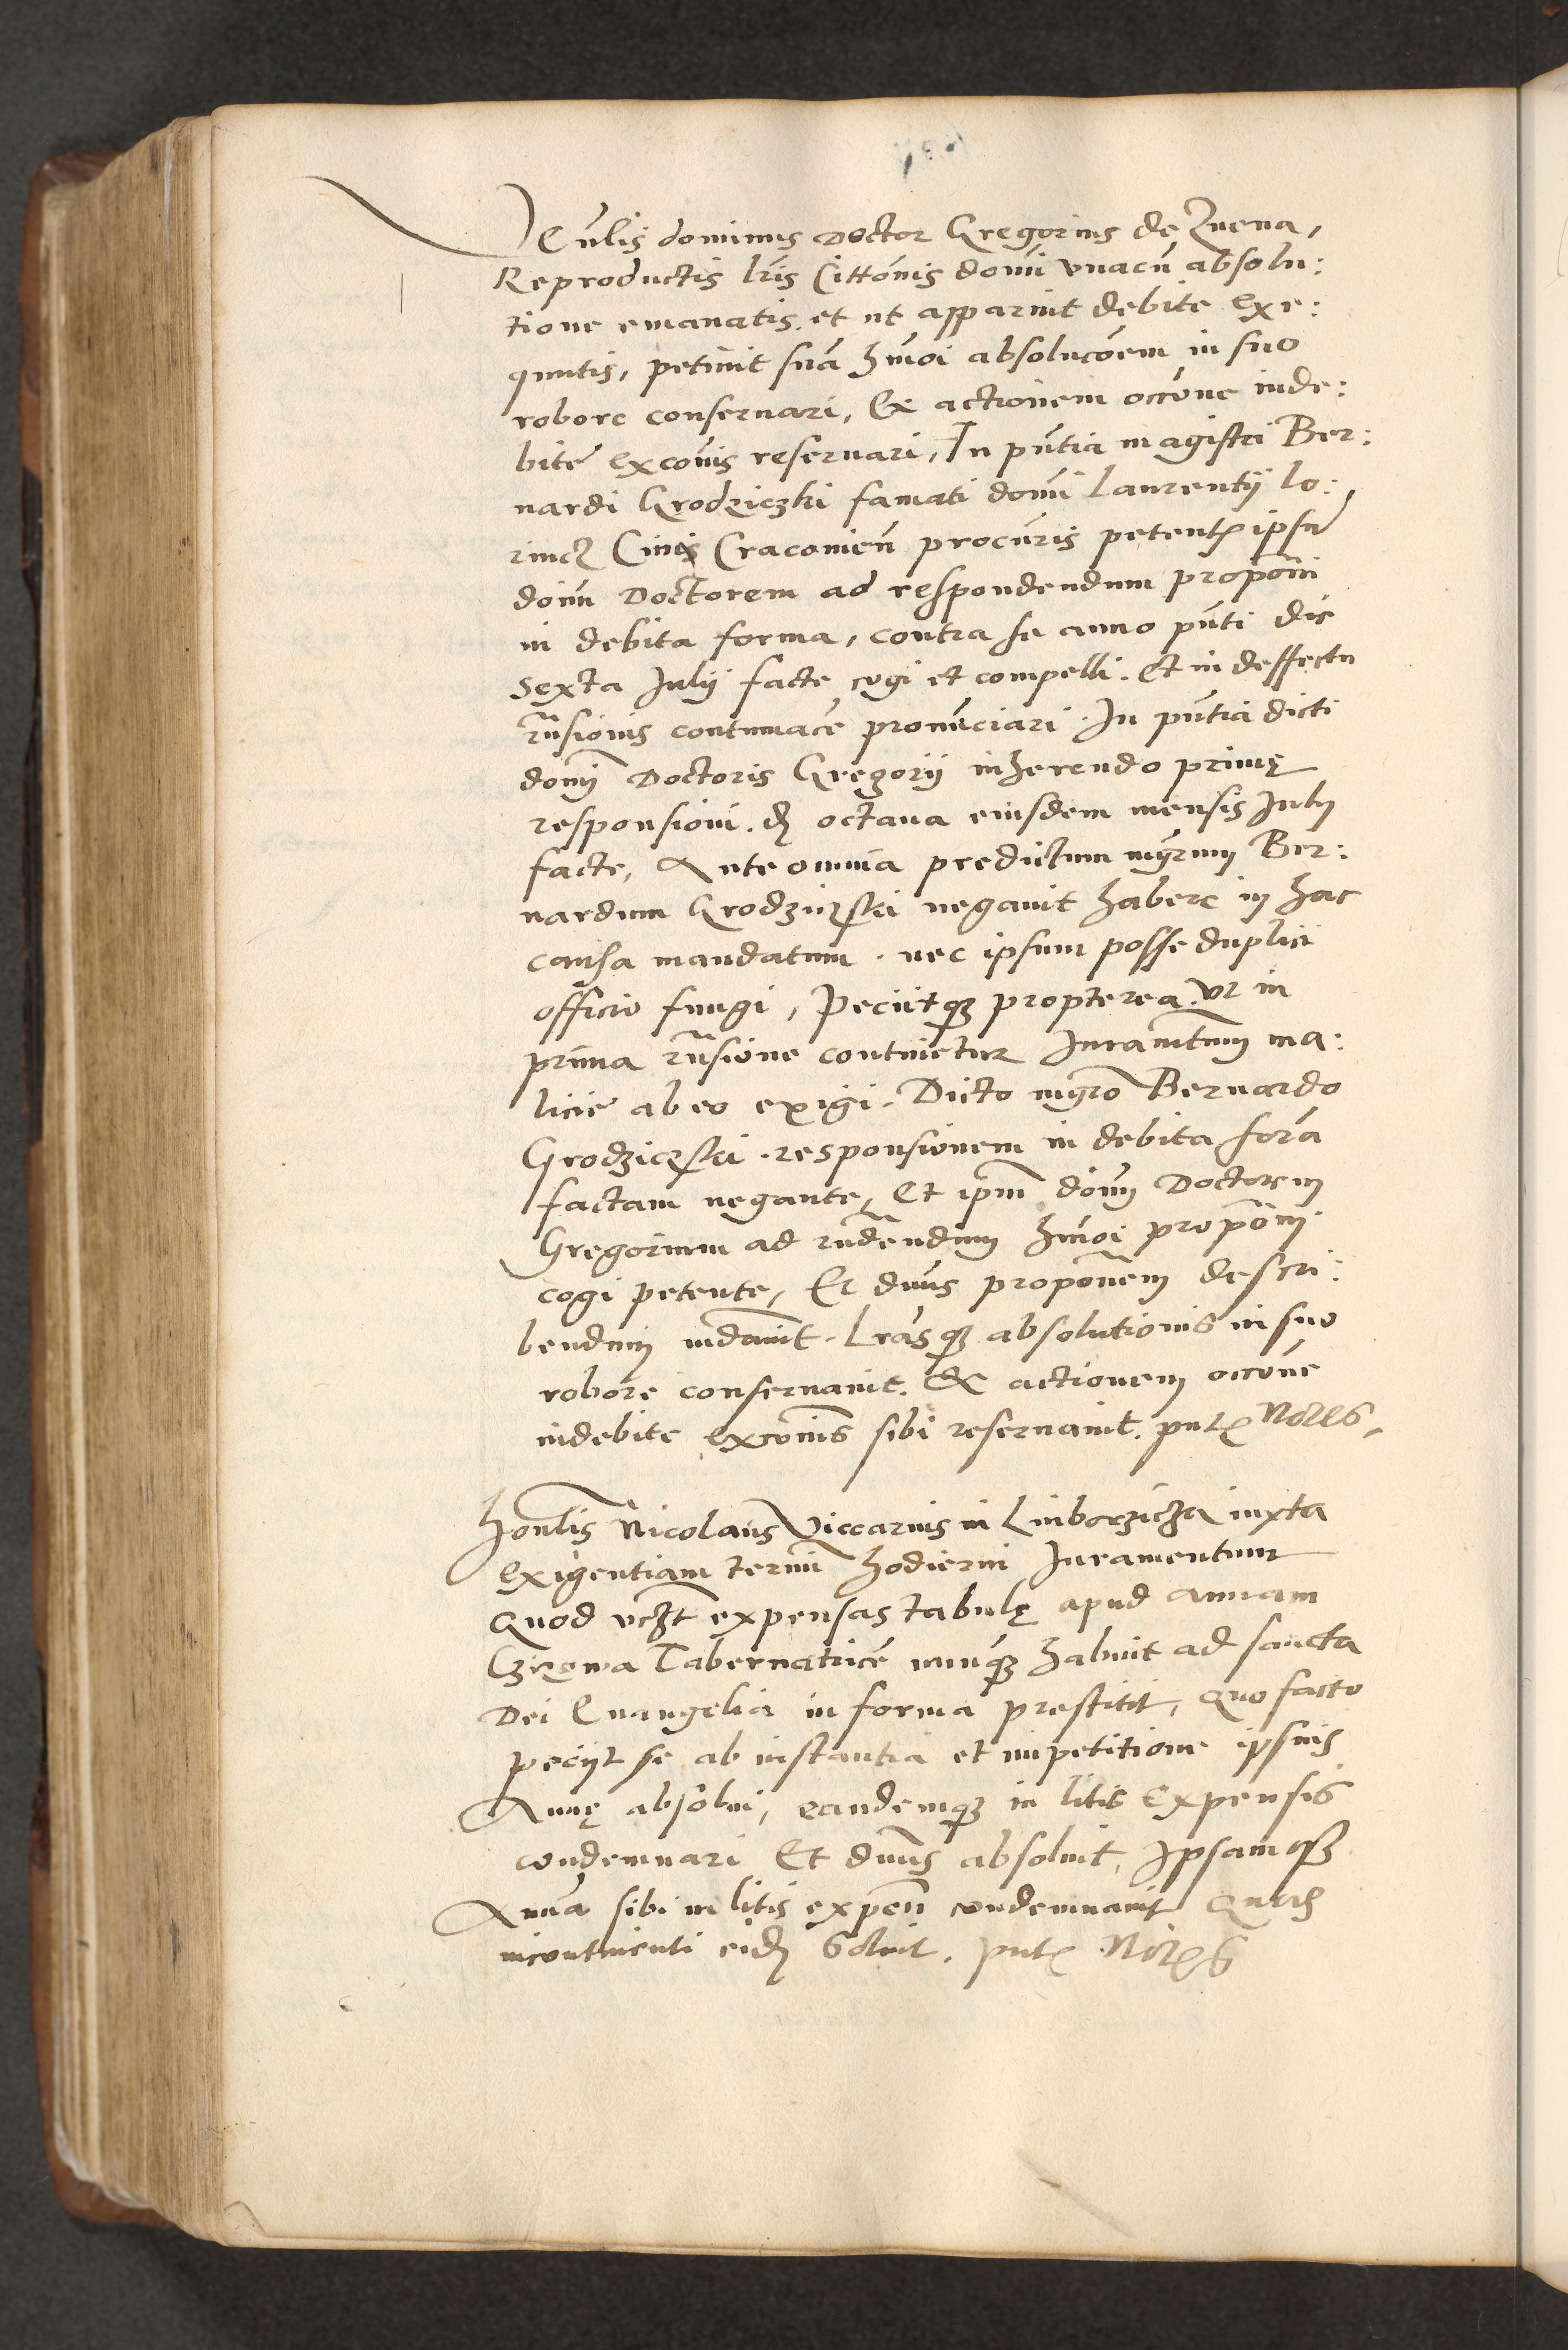 Venlis dominus Doctor Gregorius de Znena,
Reproductis lris Citto͞nis domi vnacu͞ absolu:
tione emanatis. et ut apparuit debite exe:
quutis, petiuit sua͞ hmo͞i absoluco͞em in suo
robore conseruari, Et actionem occo͞ne inde:
bite excoi͞s reseruari, In pn͞tia magistri Ber:
nardi Grodziczki famati domi Laurentij lo:
rincz Ciuis Cracouien͞ procur͞is petent͞ ipsu͞
dom͞ Doctorem ad respondendum propo͞ni
in debita forma, contra se anno pn͞ti die
sexta Julij facte cogi et compelli. Et in deffectu
rn͞sionis contumace͞ pronu͞ciari. In pn͞tia dicti
domi͞ Doctoris Gregorij inherendo primę
responsioni. d͞ octaua eiusdem mensis Julij
facte, Ante omnia predictum mgr͞um Ber:
nardum Grodziczki negauit habere in hac
causa mandatum. nec ipsum posse duplici
officio fungi, Peciitq͞ propterea vt in
prima rn͞sione continetur Juram͞tum ma:
licie ab eo exigi. Dicto mgr͞o Bernardo
Grodziczki. responsionem in debita for͞a
factam negante, Et ipm͞ dom͞ Doctorem
Gregorium ad rn͞dendum hmo͞i propo͞ni
cogi petente, Et dn͞us propo͞nem descri:
bendum md͞auit. Lra͞sq͞ absolutionis in suo
robore conseruauit. Et actionem occo͞ne
indebite exco͞nis sibi reseruauit. pn͞t͞ Notts,
Hon͞lis Nicolaus Viccarius in Linborzicza iuxta
Exigentiam termi͞ hodierni Juramentum
quod vcz͞t expensas tabulę apud annam
Tabernatrice͞ nunq͞ habuit ad sancta
Dei Euangelia in forma prestitit, quo facto
peciit se ab instantia et impetitione ipsius
Annę absolui, eandemq͞ in litis expensis
condemnari Et dn͞us absoluit, Ipsamq͞
Anna͞ sibi in litis expen͞ condemnauit quas
incontinenti eid͞ soluit. pn͞t͞ Nots